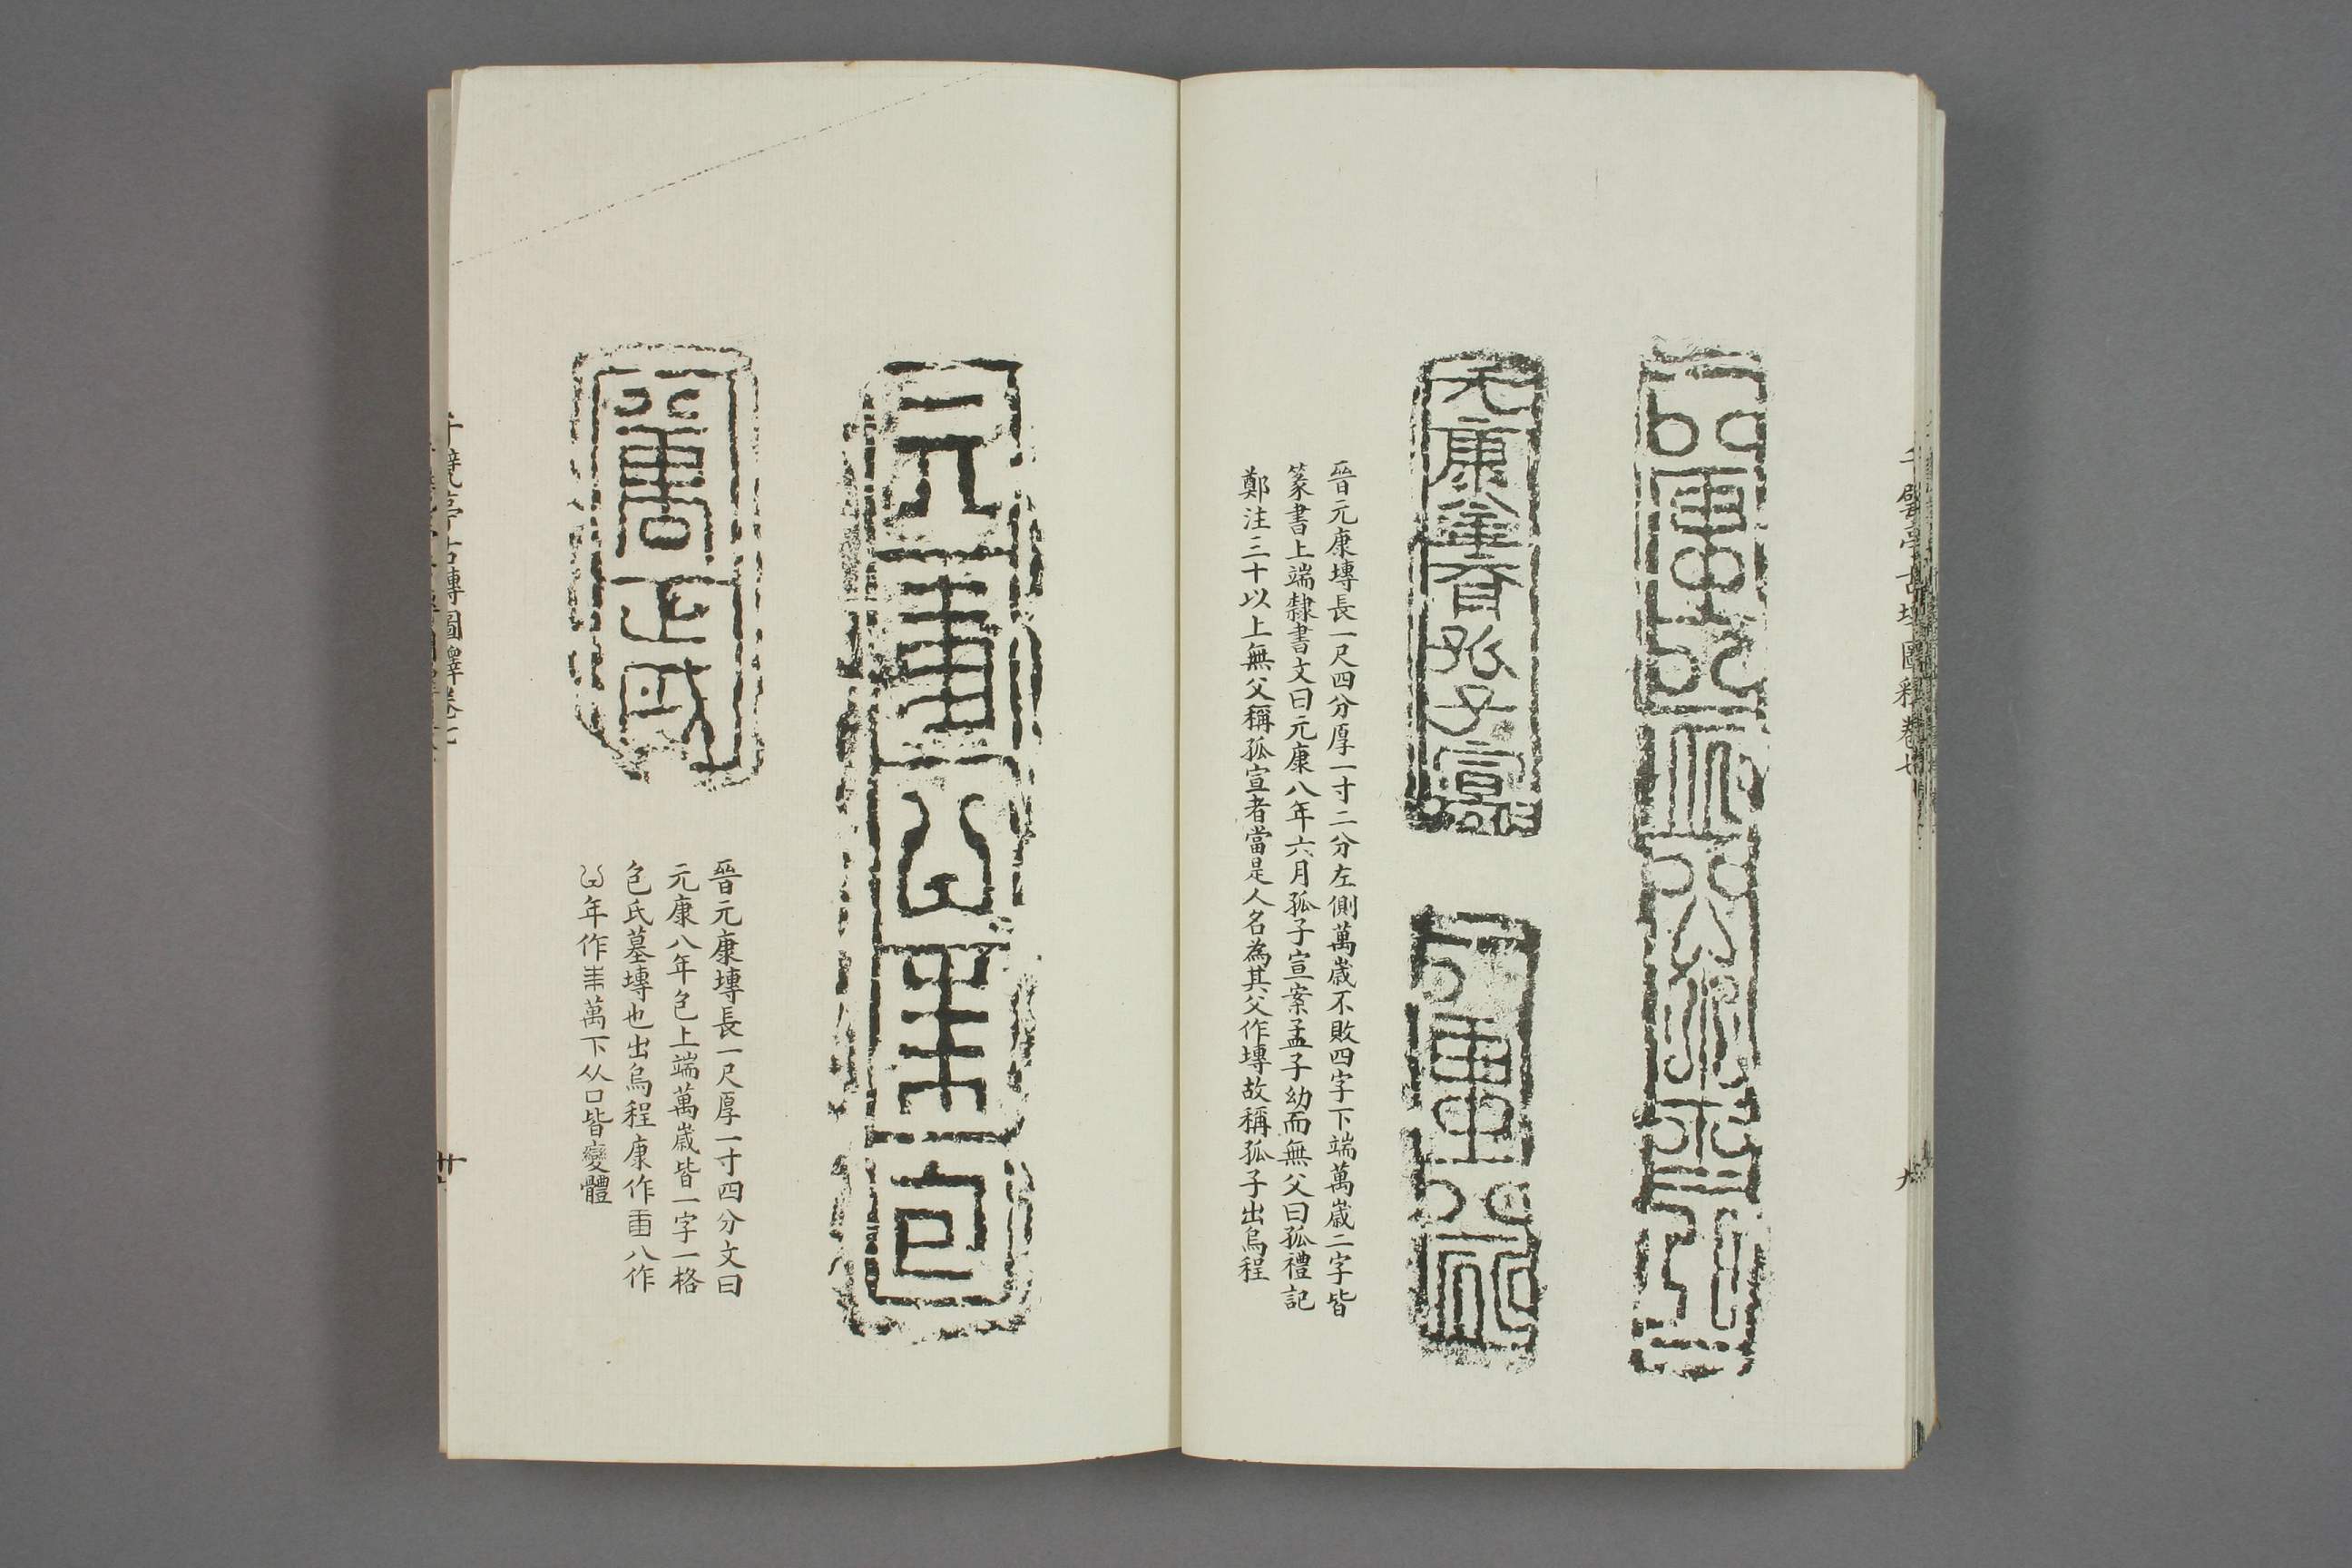 萬歲不敗
元康八年六月孤子宣
萬歲
晉元康塼長一尺四分厚一寸二分左側萬歲不敗四字下端萬歲二字皆
篆書上端隸書文曰元康八年六月孤子宣案孟子幼而無父曰孤禮記
鄭注三十以上無父稱孤宣者當是人名為其父作塼故稱孤子出烏程
元康八年㐌
萬歲
晉元康塼長一尺厚一寸四分文曰
元康八年㐌上端萬歲皆一字一格
㐌氏墓塼也出烏程康作 八作
年作 萬下从口皆變體
千甓亭古塼圖釋卷七
廿